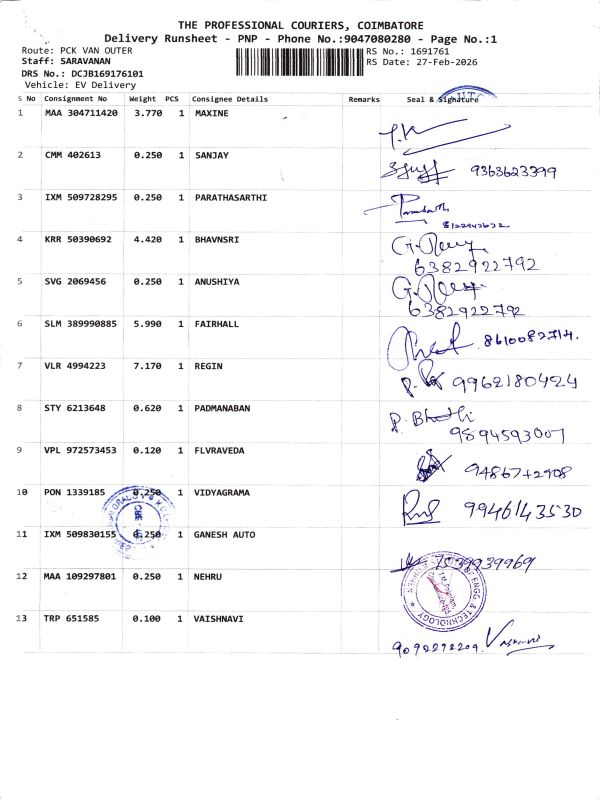 THE PROFESSIONAL COURIERS, COIMBATORE
Delivery Runsheet - PNP - Phone No.:9047080280 - Page No.:1
Route: PCK VAN OUTER
RS No.: 1691761
Staff: SARAVANAN
RS Date: 27-Feb-2026
DRS No.: DCJB169176101
Vehicle: EV Delivery
S No Consignment No Weight PCS Consignee Details Remarks Seal & Signature
1 MAA 304711420 3.770 1 MAXINE
2 CMM 402613 0.250 1 SANJAY 9363623399
3 IXM 509728295 0.250 1 PARATHASARTHI
4 KRR 50390692 4.420 1 BHAVNSRI
6382922792
5 SVG 2069456 0.250 1 ANUSHIYA
6382922792
6 SLM 389990885 5.990 1 FAIRHALL 8610082714.
7 VLR 4994223 7.170 1 REGIN 9962180424
8 STY 6213648 0.620 1 PADMANABAN
9894593007
9 VPL 972573453 0.120 1 FLVRAVEDA
10 PON 1339185 0.250 1 VIDYAGRAMA 9946143530
11 IXM 509830155 0.250 1 GANESH AUTO
12 MAA 109297801 0.250 1 NEHRU
ENGG & TECHNOLOGY
13 TRP 651585 0.100 1 VAISHNAVI